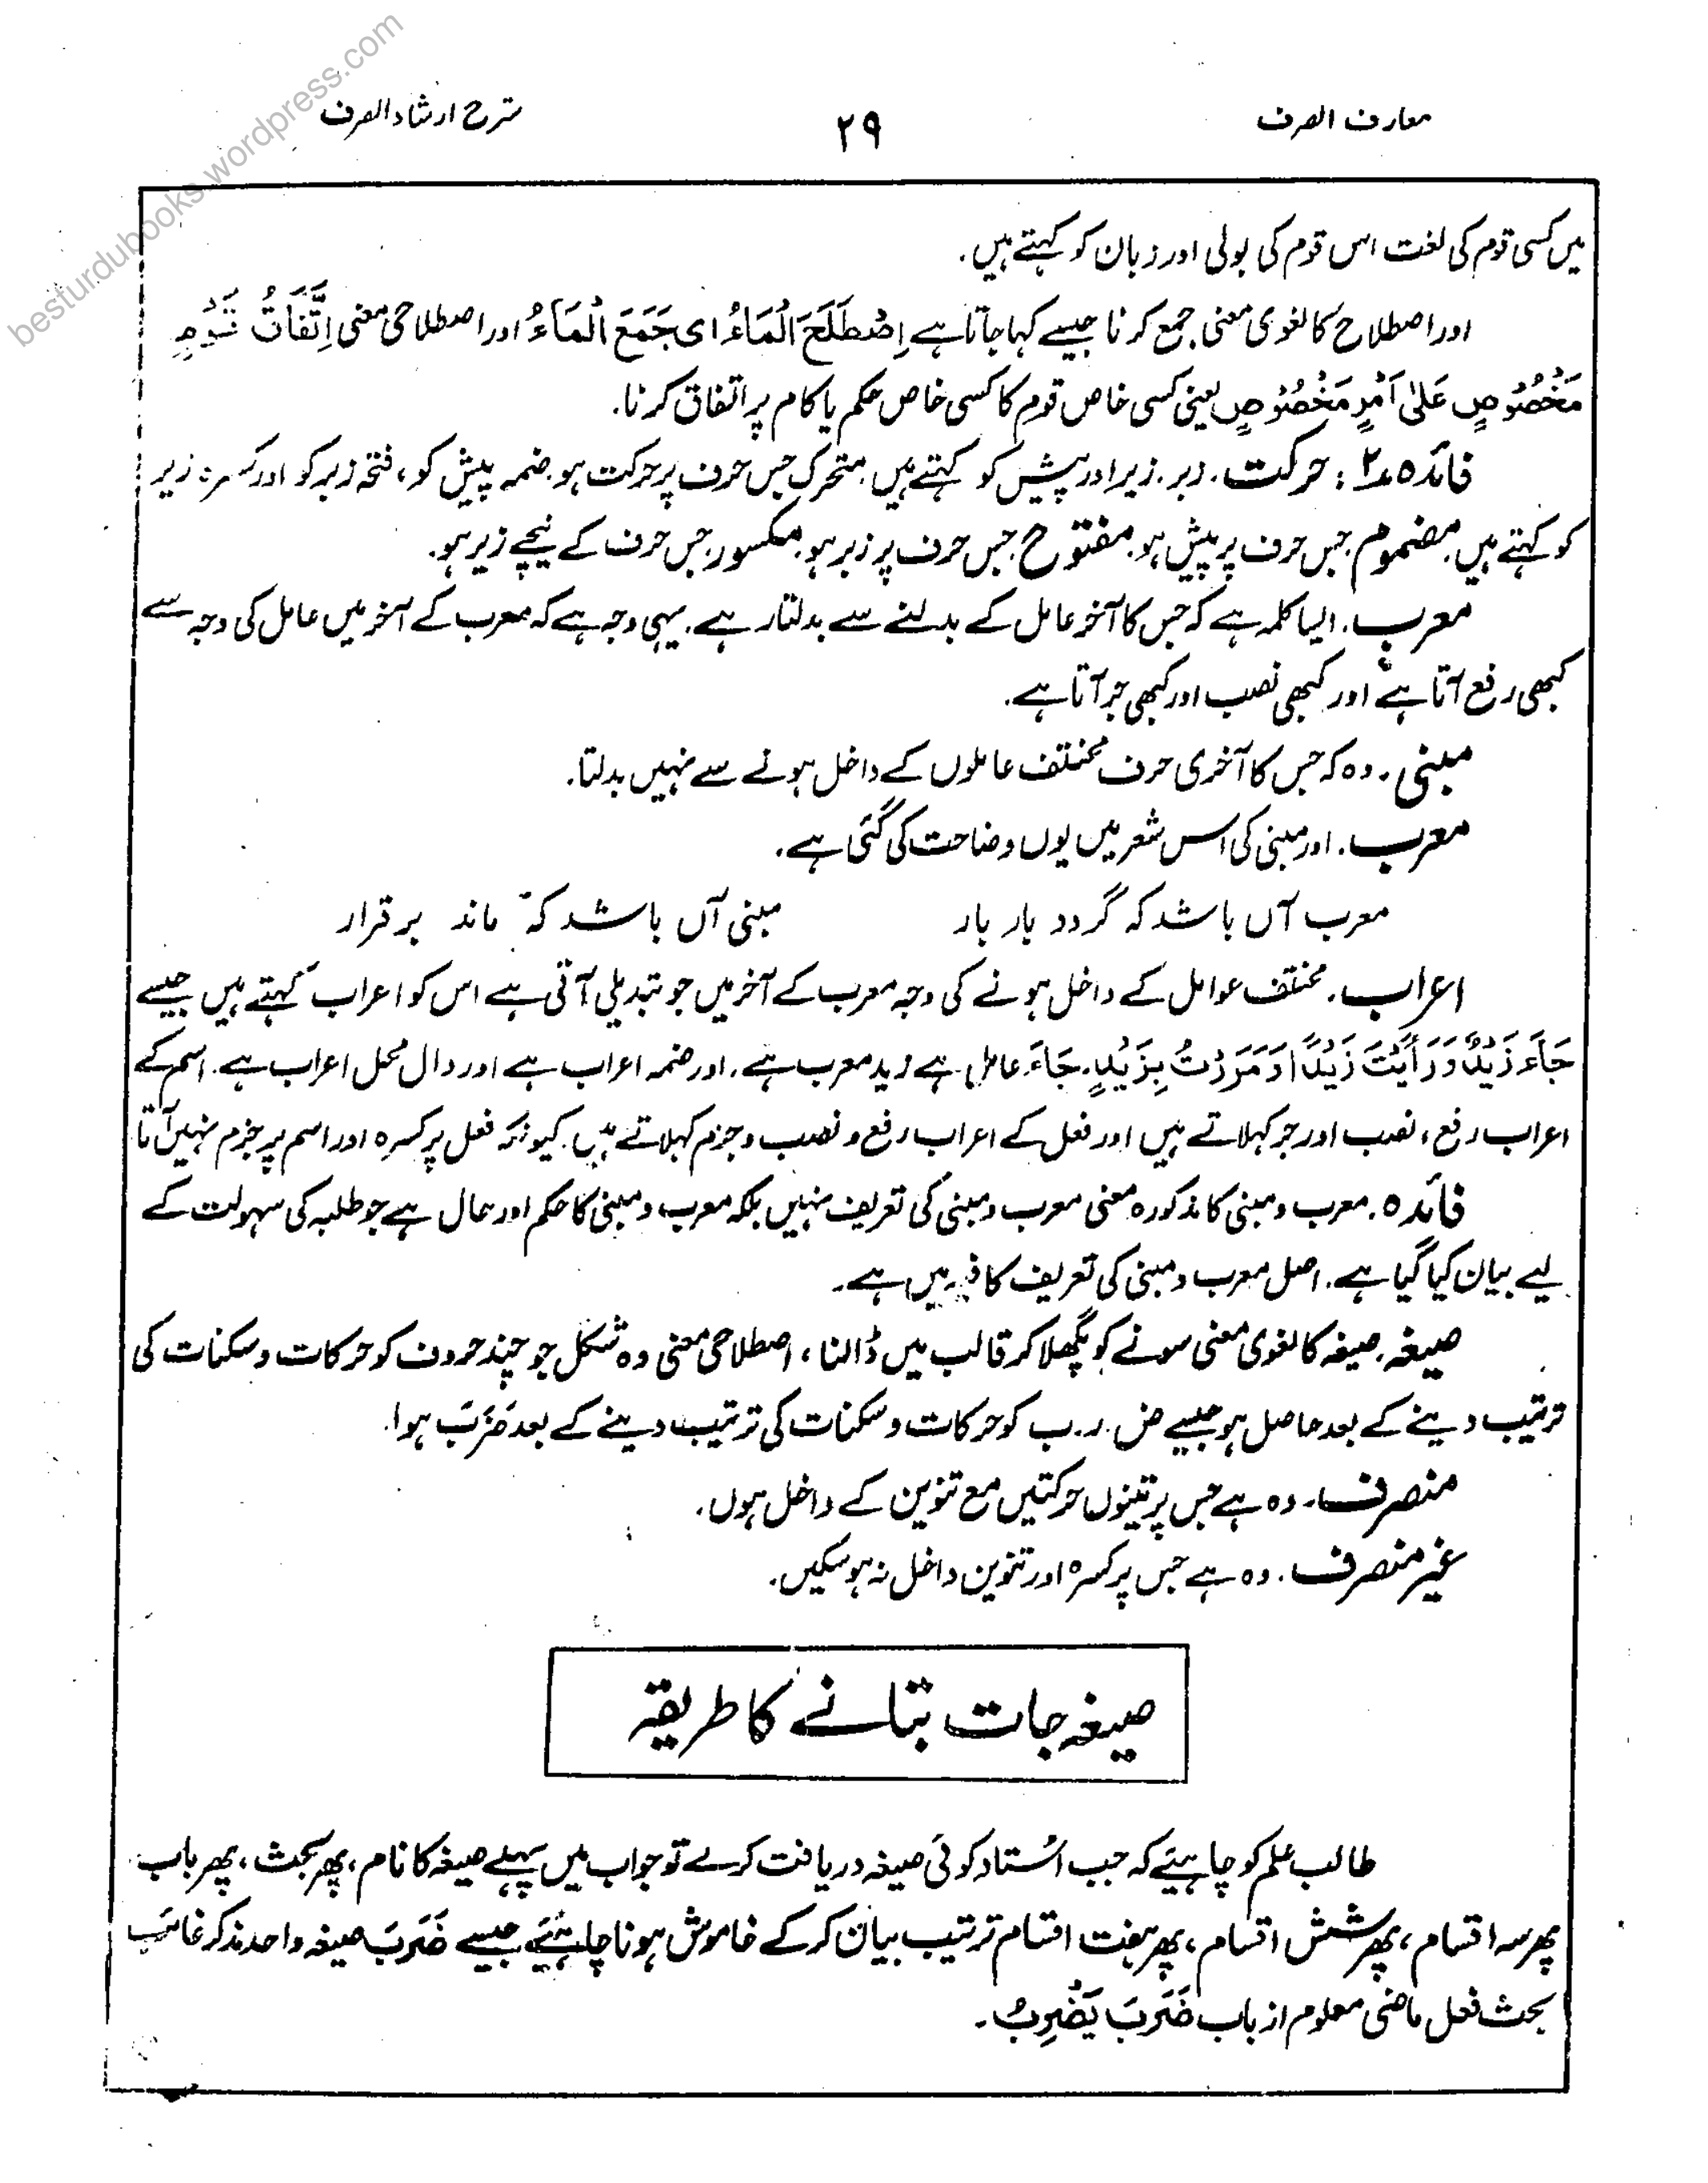 besturdubooks.wordpress.com
معارف الصرف
۲۹
شرح ارشاد الصرف
میں کسی قوم کی لغت اس قوم کی بولی اور زبان کو کہتے ہیں۔
اور اصطلاح کا لغوی معنی جمع کرنا جیسے کہا جاتا ہے اِصْطَلَحَ الْمَاءُ ای جَمَعَ الْمَاءُ اور اصطلاحی معنی اِتِّفَاقُ قَوْمٍ
مَخْصُوْصٍ عَلٰی اَمْرٍ مَخْصُوْصٍ یعنی کسی خاص قوم کا کسی خاص حکم یا کام پر اتفاق کرنا۔
فائدہ ۲: حرکت۔ زبر۔ زیر اور پیش کو کہتے ہیں۔ متحرک جس حرف پر حرکت ہو۔ ضمہ پیش کو، فتحہ زبر کو اور کسرہ زیر
کو کہتے ہیں۔ مضموم جس حرف پر پیش ہو۔ مفتوح جس حرف پر زبر ہو۔ مکسور جس حرف کے نیچے زیر ہو۔
معرب۔ ایسا کلمہ ہے کہ جس کا آخر عامل کے بدلنے سے بدلتا رہے۔ یہی وجہ ہے کہ معرب کے آخر میں عامل کی وجہ سے
کبھی رفع آتا ہے اور کبھی نصب اور کبھی جر آتا ہے۔
مبنی۔ وہ کہ جس کا آخری حرف مختلف عاملوں کے داخل ہونے سے نہیں بدلتا۔
معرب۔ اور مبنی کی اس شعر میں یوں وضاحت کی گئی ہے۔
معرب آں باشد کہ گردد بار بار مبنی آں باشد کہ ماند برقرار
اعراب۔ مختلف عوامل کے داخل ہونے کی وجہ معرب کے آخر میں جو تبدیلی آتی ہے اس کو اعراب کہتے ہیں جیسے
جَاءَ زَیْدٌ وَرَأَیْتَ زَیْدًا وَمَرَرْتُ بِزَیْدٍ۔ جَاءَ عامل ہے زید معرب ہے۔ اور ضمہ اعراب ہے اور دال محل اعراب ہے۔ اسم کے
اعراب رفع، نصب اور جر کہلاتے ہیں اور فعل کے اعراب رفع و نصب و جزم کہلاتے ہیں۔ کیونکہ فعل پر کسرہ اور اسم پر جزم نہیں آتا
فائدہ۔ معرب و مبنی کا مذکورہ معنی معرب و مبنی کی تعریف نہیں بلکہ معرب و مبنی کا حکم اور حال ہے جو طلبہ کی سہولت کے
لیے بیان کیا گیا ہے۔ اصل معرب و مبنی کی تعریف میں ہے۔
صیغہ۔ صیغہ کا لغوی معنی سونے کو پگھلا کر قالب میں ڈالنا، اصطلاحی معنی وہ شکل جو چند حروف کو حرکات و سکنات کی
ترتیب دینے کے بعد حاصل ہو جیسے ض۔ ر۔ ب کو حرکات و سکنات کی ترتیب دینے کے بعد ضَرَبَ ہوا۔
منصرف۔ وہ ہے جس پر تینوں حرکتیں مع تنوین کے داخل ہوں۔
غیر منصرف۔ وہ ہے جس پر کسرہ اور تنوین داخل نہ ہو سکیں۔
صیغہ جات بتانے کا طریقہ
طالب علم کو چاہیئے کہ جب اُستاد کوئی صیغہ دریافت کرے تو جواب میں پہلے صیغہ کا نام، پھر بحث، پھر باب
پھر سہ اقسام، پھر شش اقسام، پھر ہفت اقسام ترتیب بیان کر کے خاموش ہونا چاہئیے جیسے ضَرَبَ صیغہ واحد مذکر غائب
بحث فعل ماضی معلوم از باب ضَرَبَ یَضْرِبُ۔